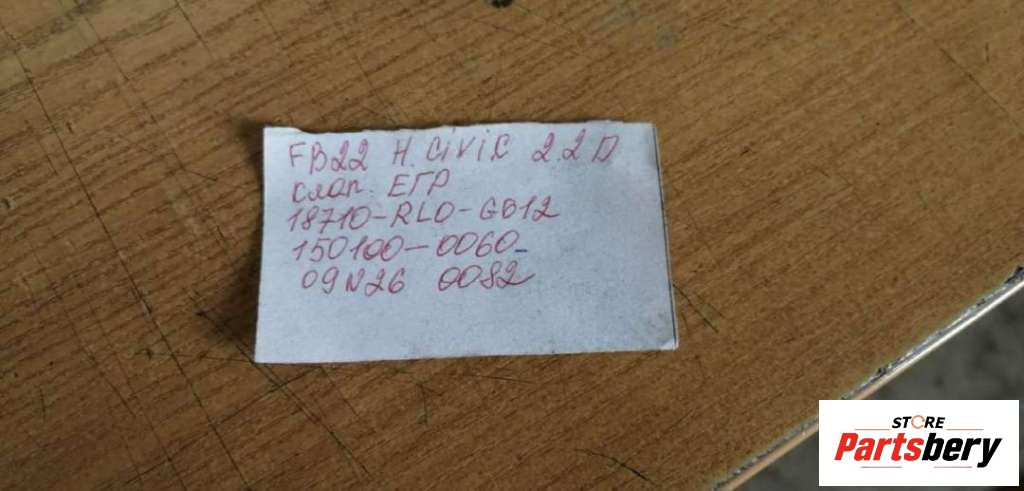 FB22 H. CiViC 2.2 D
клап. ЕГР
18710-RL0-G012
150100-0060
09N26 0082
STORE
Partsbery